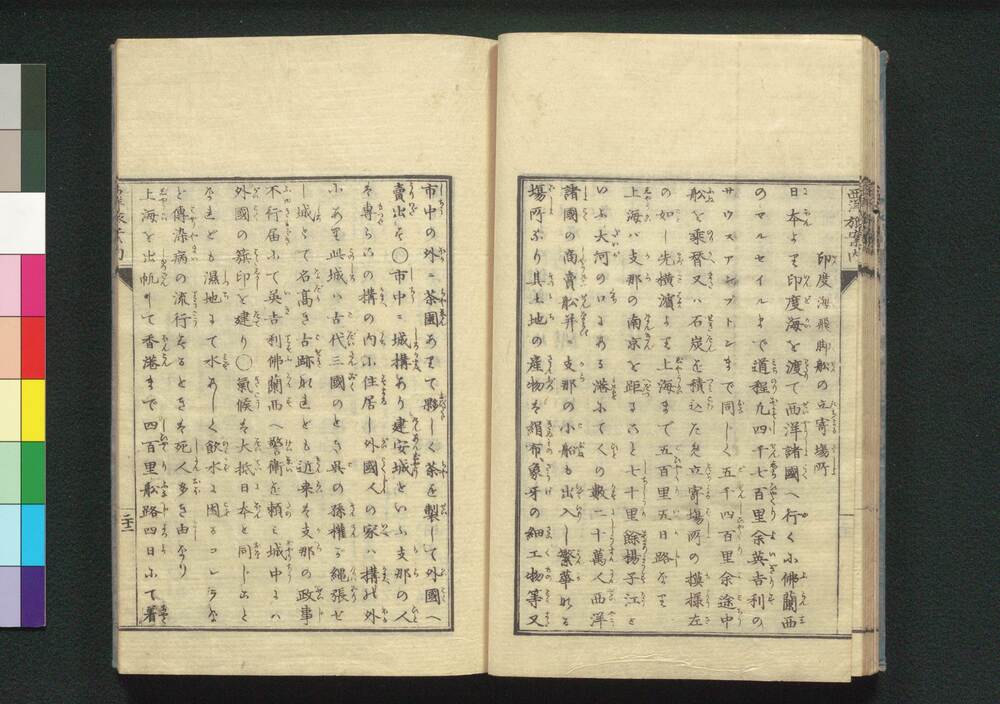 西洋旅案内
印度海飛脚船の立寄場所
日本より印度海を渡て西洋諸國へ行くに佛蘭西
のマルセイルまで道程九四千七百里余英吉利の
サウスアンプトンまで同しく五千四百里余途中
船を乗替又ハ石炭を積込ため立寄場所の模様左
の如し先横濱より上海まで五百里五日路なり
上海ハ支那の南京を距ること七十里餘揚子江と
いふ大河の口にある湊にて人の數二十萬人西洋
諸國の商賣船并ニ支那の小船も出入し繁華なる
場所なり其土地の産物は絹布、象牙の細工物等又
市中の外ニ茶園ありて夥しく茶を製して外國へ
賣出す〇市中ニ城構あり建安城といふ支那の人
は専らこの構の内に住居し外國人の家ハ構の外
にあり此城ハ古代三國のとき呉の孫權が縄張せ
し城にて名高き古跡なれども近来は支那の政事
不行届にて英吉利佛蘭西へ警衛を頼ミ城中にハ
外國の籏印を建り〇氣候は大抵日本と同じこと
なれども濕地にて水あしく飲水に困ることアラな
ど傳染病の流行するときは死人多き由なり
上海を出帆して香港まで四百里船路四日にて着
二十二